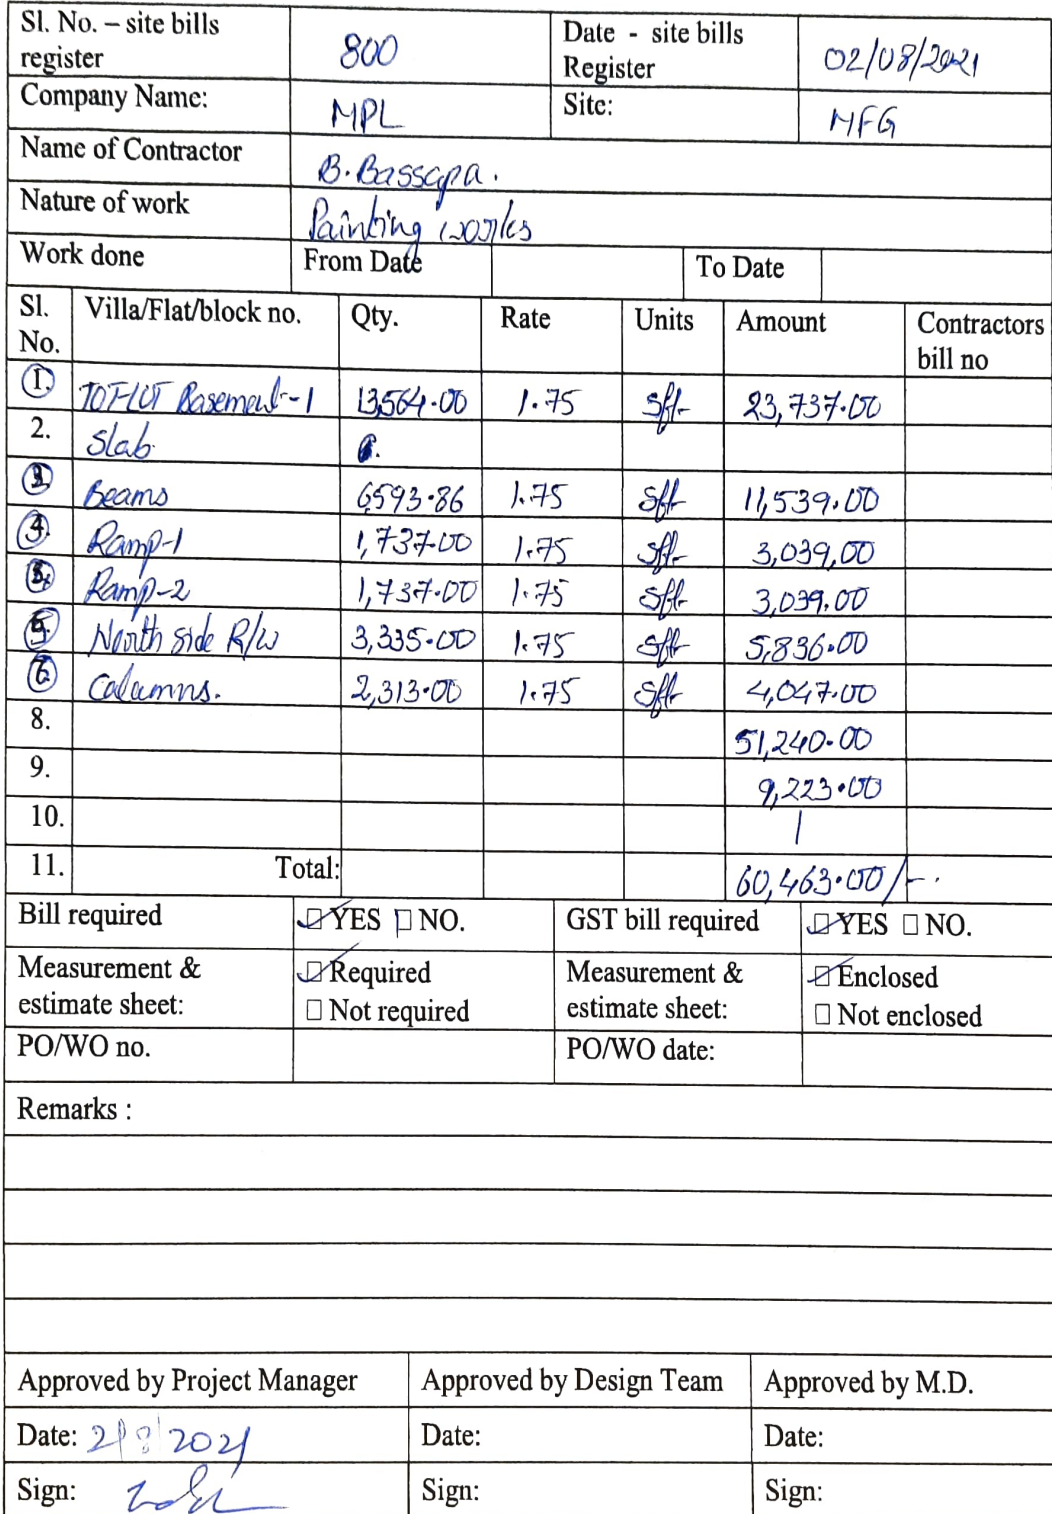 Sl. No. – site bills register 800 Date - site bills Register 02/08/2021
Company Name: MPL Site: MFG
Name of Contractor B. Bassapa.
Nature of work Painting works
Work done From Date To Date
Sl. No. Villa/Flat/block no. Qty. Rate Units Amount Contractors bill no
1. TOTLOT Basement-1 13,564.00 1.75 Sft 23,737.00
2. Slab
2. Beams 6593.86 1.75 Sft 11,539.00
3. Ramp-1 1,737.00 1.75 Sft 3,039.00
4. Ramp-2 1,737.00 1.75 Sft 3,039.00
5. North side R/W 3,335.00 1.75 Sft 5,836.00
6. Calumns. 2,313.00 1.75 Sft 4,047.00
8. 51,240.00
9. 9,223.00
10.
11. Total: 60,463.00/-.
Bill required YES NO. GST bill required YES NO.
Measurement & estimate sheet: Required Not required Measurement & estimate sheet: Enclosed Not enclosed
PO/WO no. PO/WO date:
Remarks :
Approved by Project Manager Approved by Design Team Approved by M.D.
Date: 2/8/2021 Date: Date:
Sign: Sign: Sign: